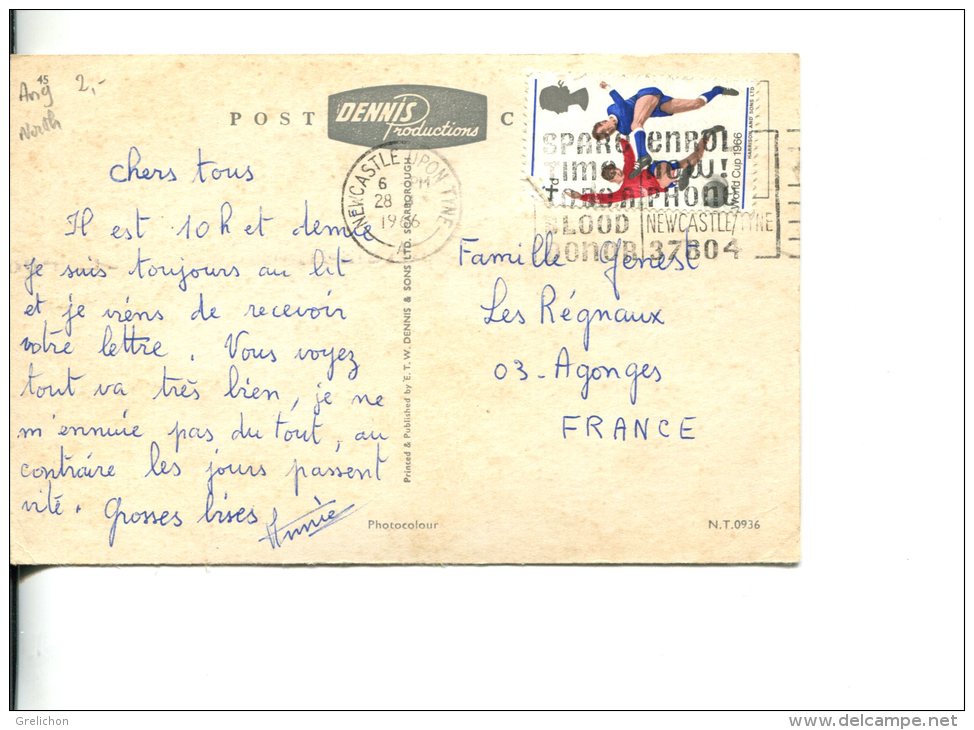 45
Ang 2,-
North
POST DENNIS Productions C
chers tous
Il est 10h et demie
Je suis toujours au lit
et je viens de recevoir
votre lettre. Vous voyez
tout va très bien, je ne
m'ennuie pas du tout, au
contraire les jours passent
vite. Grosses bises
Annie
NEWCASTLE UPON TYNE
6 PM
28
1966
A
SPARE
TIME
BLOOD
DONOR
ENROL
NOW!
PHONE
NEWCASTLE/TYNE
37804
World Cup 1966
HARRISON AND SONS LTD
Printed & Published by E.T.W. DENNIS & SONS LTD. SCARBOROUGH
Famille Genest
Les Régnaux
03 - Agonges
FRANCE
Photocolour
N.T.0936
Grelichon
www.delcampe.net